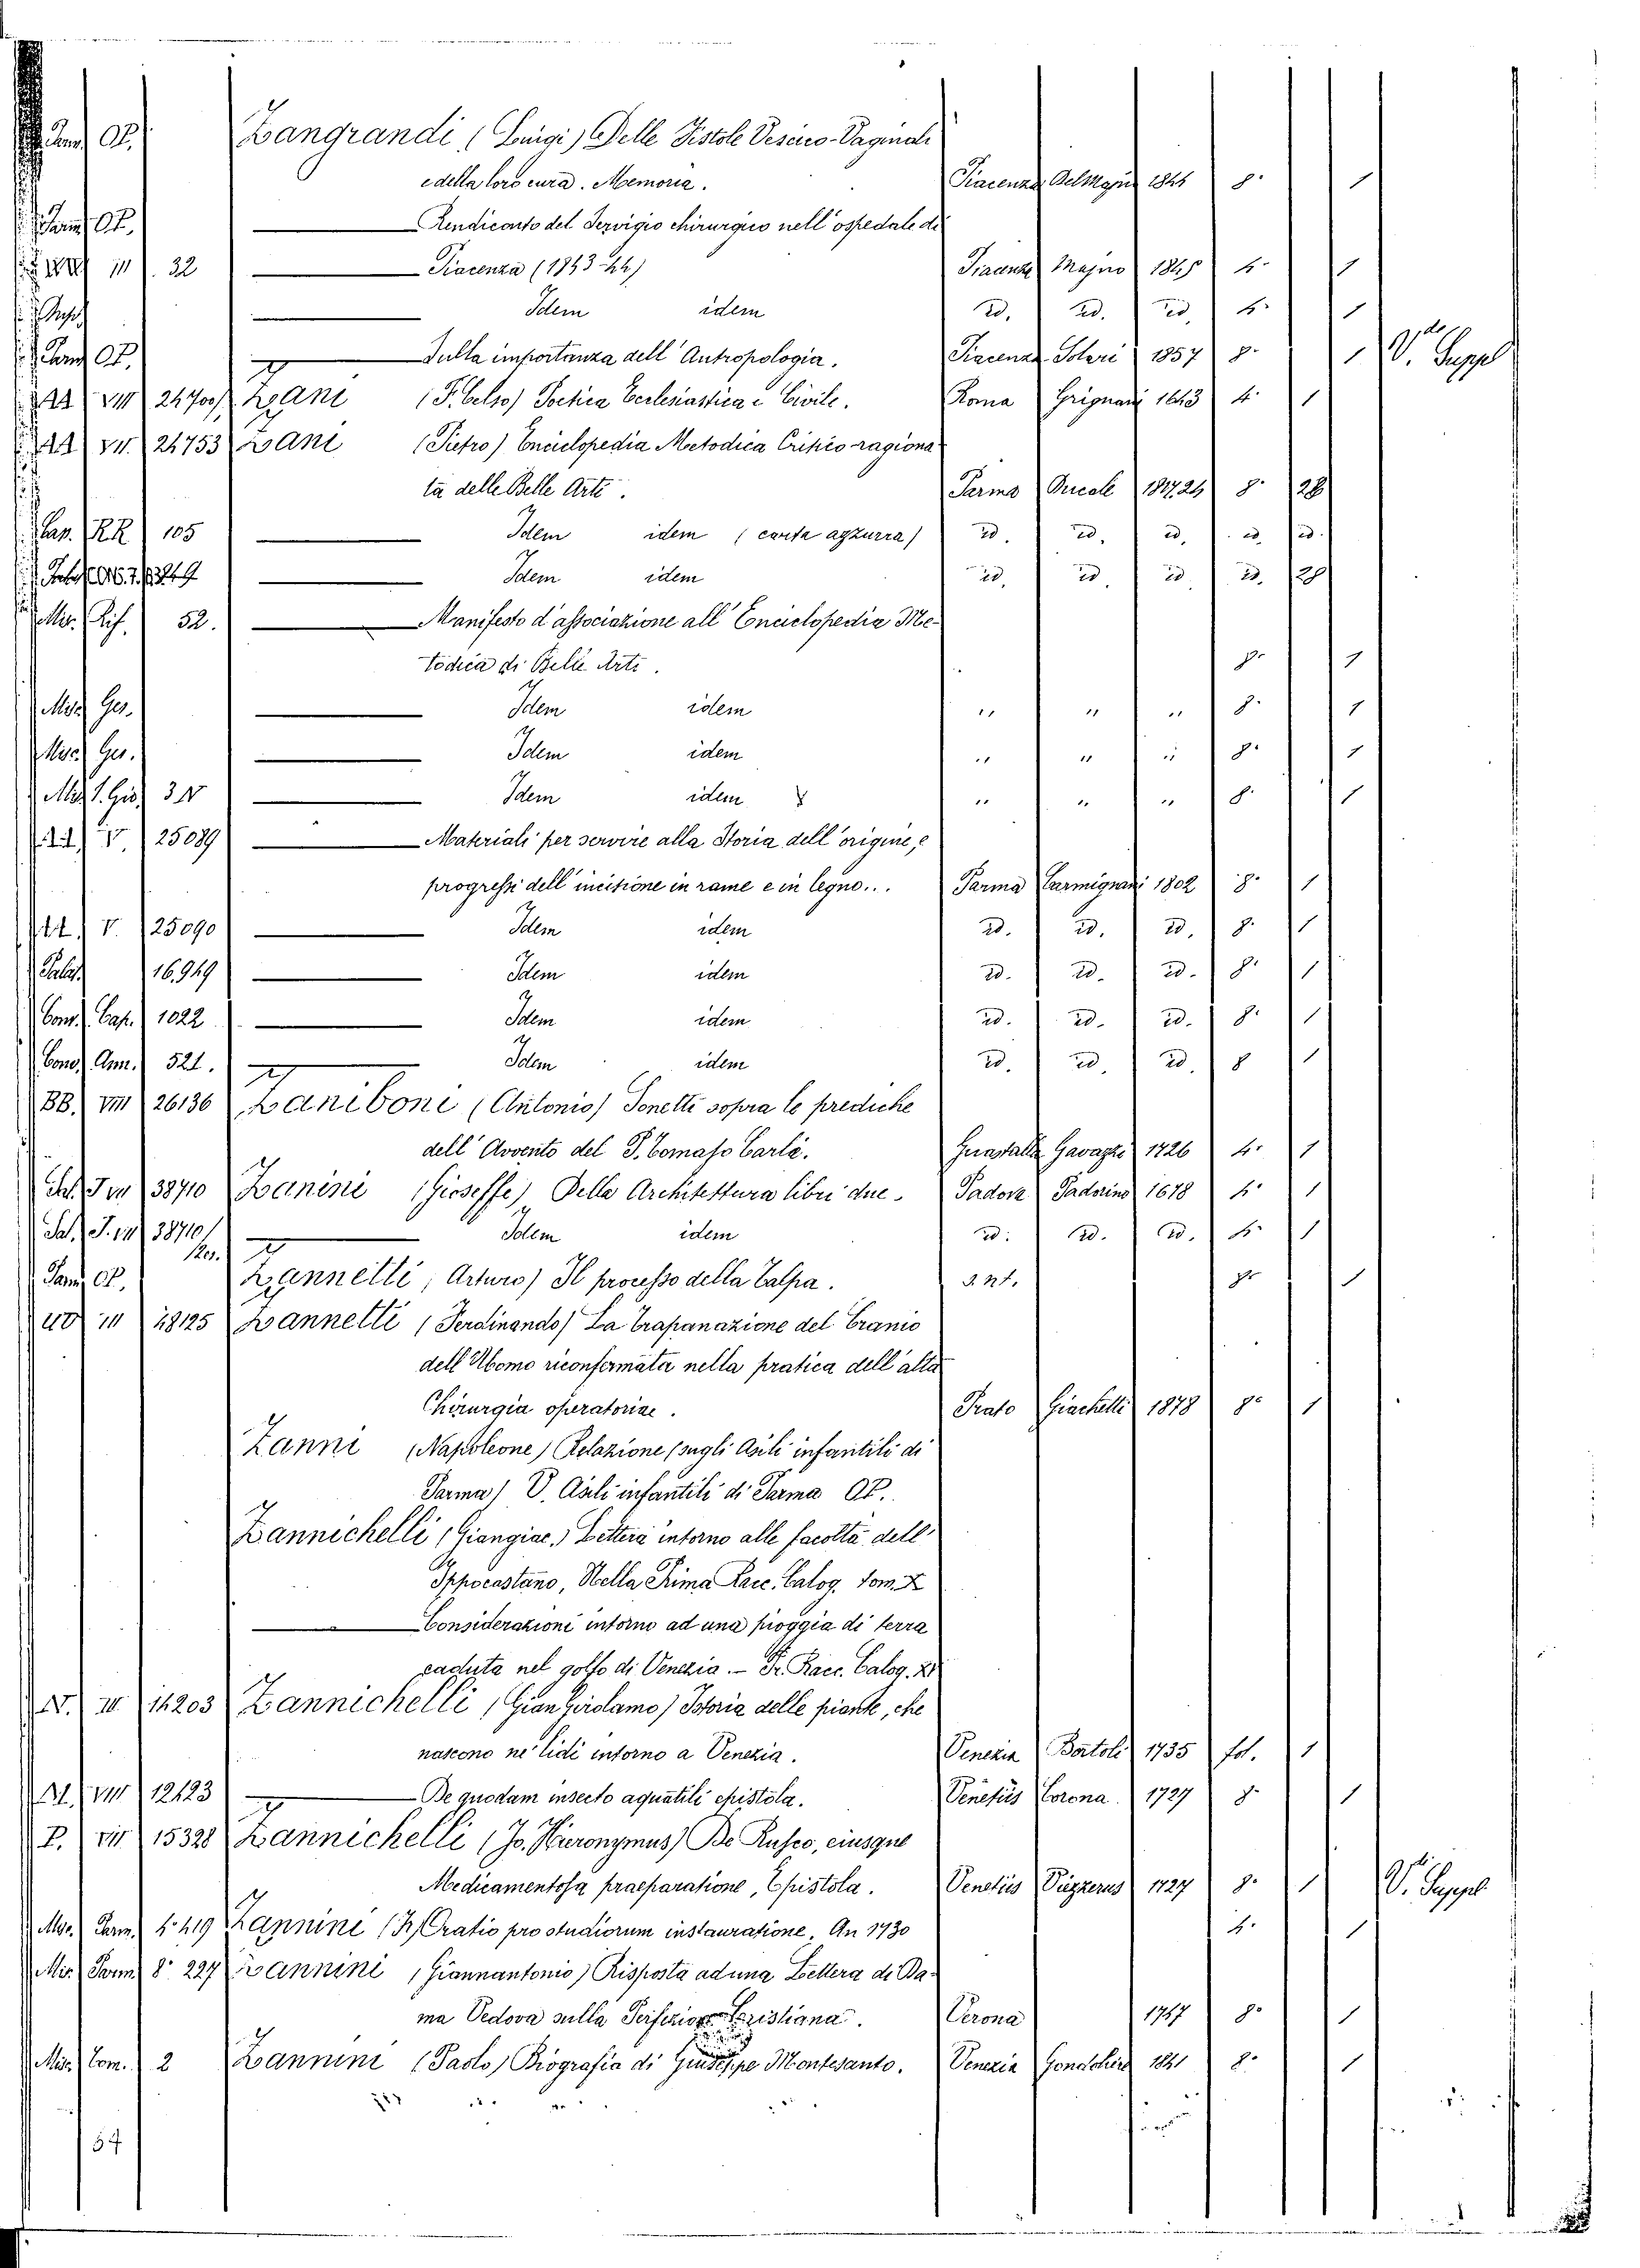 OP. Zangrandi (Luigi) Delle Fistole Vescico-Vaginali
e della loro cura. Memoria. Piacenza Del Majno 1844 8° 1
OP. Rendiconto del Servigio chirurgico nell'ospedale di
III 32 Piacenza (1843-44) Piacenza Majno 1845 4° 1
Idem idem id. id. id. 4° 1
OP. Sulla importanza dell'Antropologia. Piacenza Solari 1857 8° 1 V. Suppl
VIII 24700 Zani (P. Celso) Poetica Ecclesiastica e Civile. Roma Grignani 1643 4° 1
VII. 24753 Zani (Pietro) Enciclopedia Metodica Critico-ragiona
ta delle Belle Arti. Parma Ducale 1817.24 8° 28
RR 105 Idem idem (carta azzurra) id. id. id. id. id.
Idem idem id. id. id. id. 28
52. Manifesto d'associazione all'Enciclopedia Me-
todica di Belle Arti. 8° 1
Misc. Ger. Idem idem " " " 8° 1
Misc. Ger. Idem idem " " " 8° 1
Idem idem " " " 8° 1
V. 25089 Materiali per servire alla Storia dell'origine, e
progressi dell'incisione in rame e in legno... Parma Carmignani 1802 8° 1
V. 25090 Idem idem id. id. id. 8° 1
Palat. 16,949 Idem idem id. id. id. 8° 1
Cons. Cap. 1022 Idem idem id. id. id. 8° 1
Cons. Ann. 521. Idem idem id. id. id. 8 1
BB. VIII 26136 Zaniboni (Antonio) Sonetti sopra le prediche
dell'Avvento del P. Tomaso Carli. Guastalla Gavazzi 1726 4° 1
Sal. J. VII 38710 Zanini (Gioseffe) Della Architettura libri due. Padova Padorino 1678 4° 1
Sal. J. VII 38710/ Idem idem id. id. id. 4° 1
Parm. OP. Zannetti, Arturo) Il processo della Talpa. s.n.t. 8° 1
III 48125 Zannetti (Ferdinando) La Trapanazione del Cranio
dell'Uomo riconfermata nella pratica dell'alta
Chirurgia operatoriae. Prato Giachetti 1878 8° 1
Zanni (Napoleone) Relazione (sugli Asili infantili di
Parma) V. Asili infantili di Parma OP.
Zannichelli (Giangiac.) Lettera intorno alle facoltà dell'
Ippocastano, Nella Prima Racc. Calog. Tom. X
Considerazioni intorno ad una pioggia di terra
caduta nel golfo di Venezia. - Pr. Racc. Calog. XI
N. III 14203 Zannichelli (Gian Girolamo) Istoria delle piante, che
nascono ne' lidi intorno a Venezia. Venezia Bortoli 1735 fol. 1
M. VIII 12123 De quodam insecto aquatili epistola. Venetiis Corona 1727 8° 1
P. VII 15328 Zannichelli (Jo. Hieronymus) De Rusco, eiusque
Medicamentosa praeparatione, Epistola. Venetiis Pezzerus 1727 8° 1 V. Suppl
Misc. Parm. 4° 419 Zannini (J.) Oratio pro studiorum instauratione, An 1730 4. 1
Misc. Parm. 8° 227 Zannini (Giannantonio) Risposta ad una Lettera di Da-
ma Vedova sulla Perfezion Cristiana. Verona 1747 8° 1
Misc. Com. 2 Zannini (Paolo) Biografia di Giuseppe Montesanto. Venezia Gondoliere 1841 8° 1
54